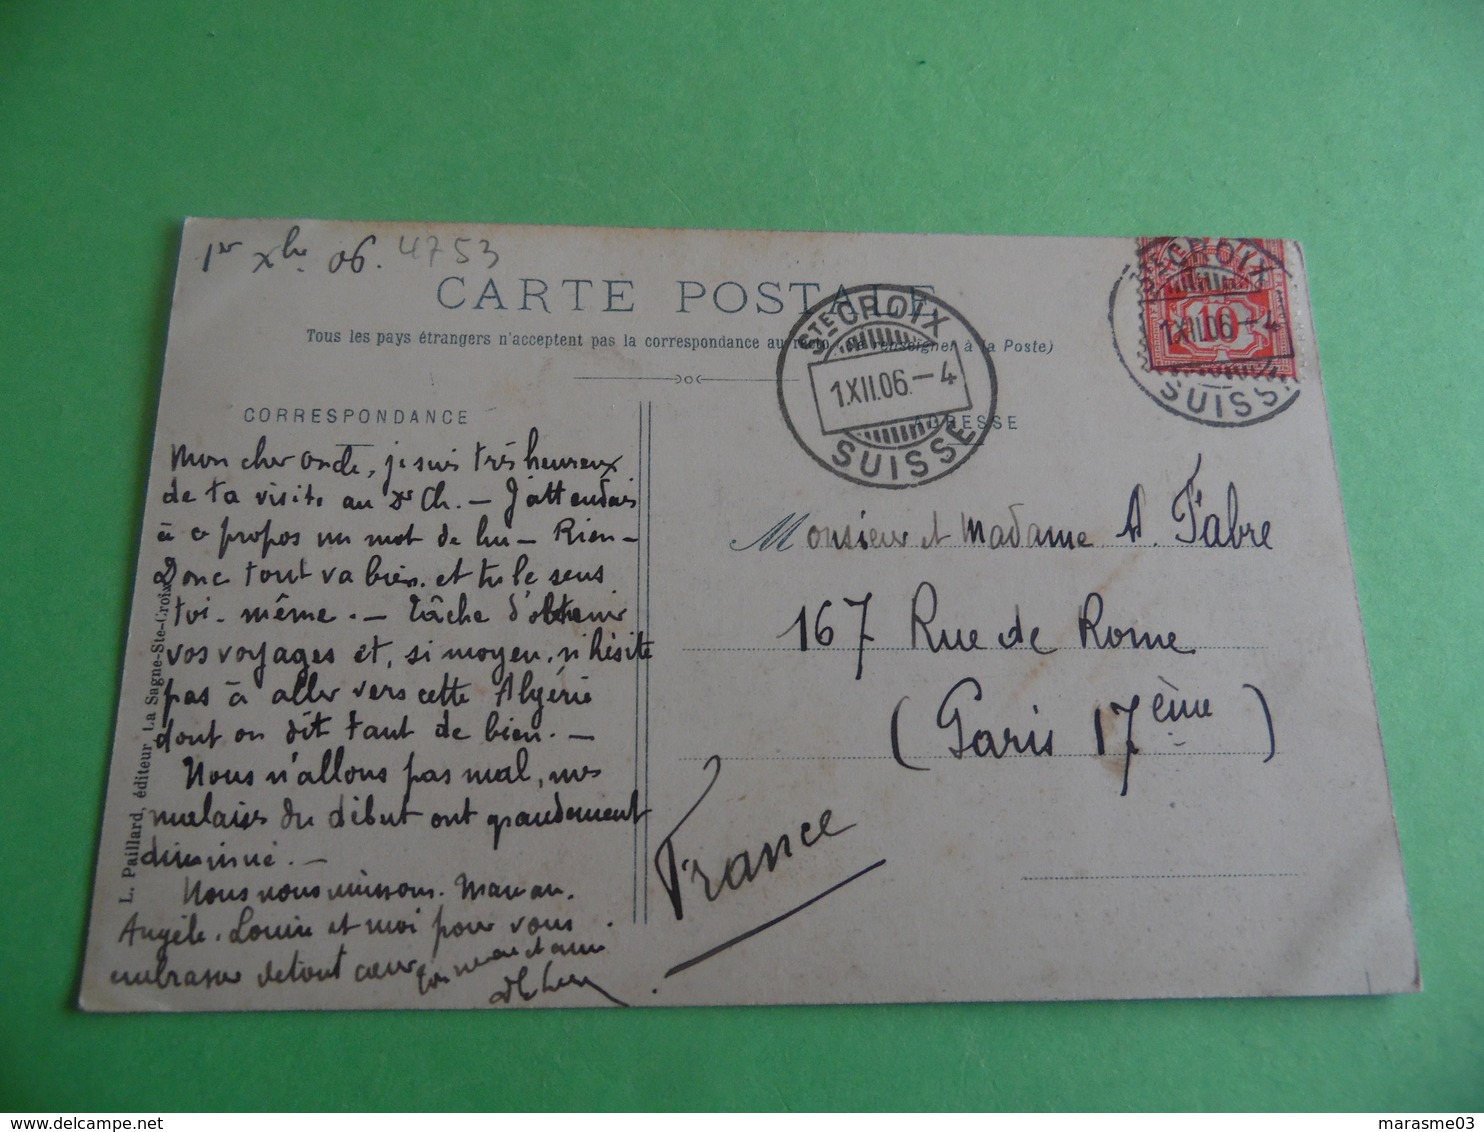 1er Xbre 06. 4753
CARTE POSTALE
Tous les pays étrangers n'acceptent pas la correspondance au recto (se renseigner à la Poste)
STE-CROIX
1.XII.06.-4
SUISSE
STE-CROIX
10
1.XII.06.-4
SUISSE
CORRESPONDANCE
ADRESSE
Mon cher oncle, je suis très heureux
de ta visite au Dr Ch. — J'attendais
à ce propos un mot de lui — Rien —
Donc tout va bien. et tu le sens
toi-même. — Tâche d'obtenir
vos voyages et, si moyen, n'hésite
pas à aller vers cette Algérie
dont on dit tant de bien. —
Nous n'allons pas mal, nos
malaises du début ont grandement
diminué. —
Nous nous unissons. Maman.
Angèle. Louise et moi pour vous
embrasser de tout cœur
Monsieur et Madame A. Fabre
167 Rue de Rome
(Paris 17ème)
France
L. Paillard, éditeur La Sagne-Ste-Croix
marasme03